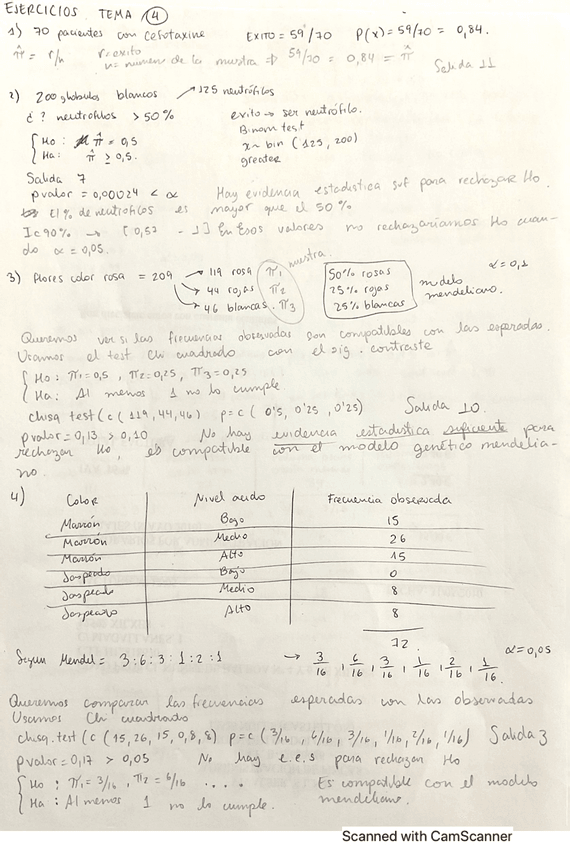 EJERCICIOS TEMA 4
1) 70 pacientes con Cefotaxine EXITO = 59/70 P(x) = 59/70 = 0,84.
π̂ = r/n r = exito
n = numero de la muestra → 59/70 = 0,84 = π̂ Salida 11
2) 200 globulos blancos → 125 neutrófilos
¿? neutrofilos > 50% exito → ser neutrófilo.
{ Ho: π̂ = 0,5 Binom test
{ Ha: π̂ > 0,5. x ~ bin (125, 200)
greater
Salida 7
pvalor = 0,00024 < α Hay evidencia estadistica suf para rechazar Ho.
El % de neutrofilos es mayor que el 50%
Ic 90% → [0,57 - 1] En Esos valores no rechazaríamos Ho cuan-
do α = 0,05.
3) flores color rosa = 209 → 119 rosa π1 muestra. 50% rosas α = 0,1
→ 44 rojas π2 25% rojas modelo
→ 46 blancas. π3 25% blancas mendeliano.
Queremos ver si las frecuencias observadas son compatibles con las esperadas.
Usamos el test Chi cuadrado con el sig. contraste
{ Ho: π1 = 0,5, π2 = 0,25, π3 = 0,25
{ Ha: Al menos 1 no lo cumple.
chisq test (c (119, 44, 46) p = c ( 0'5, 0'25, 0'25) Salida 10.
pvalor = 0,13 > 0,10 No hay evidencia estadistica suficiente para
rechazar Ho, es compatible con el modelo genético mendelia-
no.
4) Color Nivel acido Frecuencia observada
Marrón Bajo 15
Marrón Medio 26
Marrón Alto 15
Jaspeado Bajo 0
Jaspeado Medio 8
Jaspeado Alto 8
72.
Segun Mendel = 3:6:3:1:2:1 → 3/16, 6/16, 3/16, 1/16, 2/16, 1/16. α = 0,05
Queremos comparar las frecuencias esperadas con las observadas
Usamos Chi cuadrado
chisq.test (c (15, 26, 15, 0, 8, 8) p = c (3/16, 6/16, 3/16, 1/16, 2/16, 1/16) Salida 3
pvalor = 0,17 > 0,05 No hay e.e.s para rechazar Ho
{ Ho: π1 = 3/16, π2 = 6/16 .... Es compatible con el modelo
{ Ha: Al menos 1 no lo cumple. mendeliano.
Scanned with CamScanner